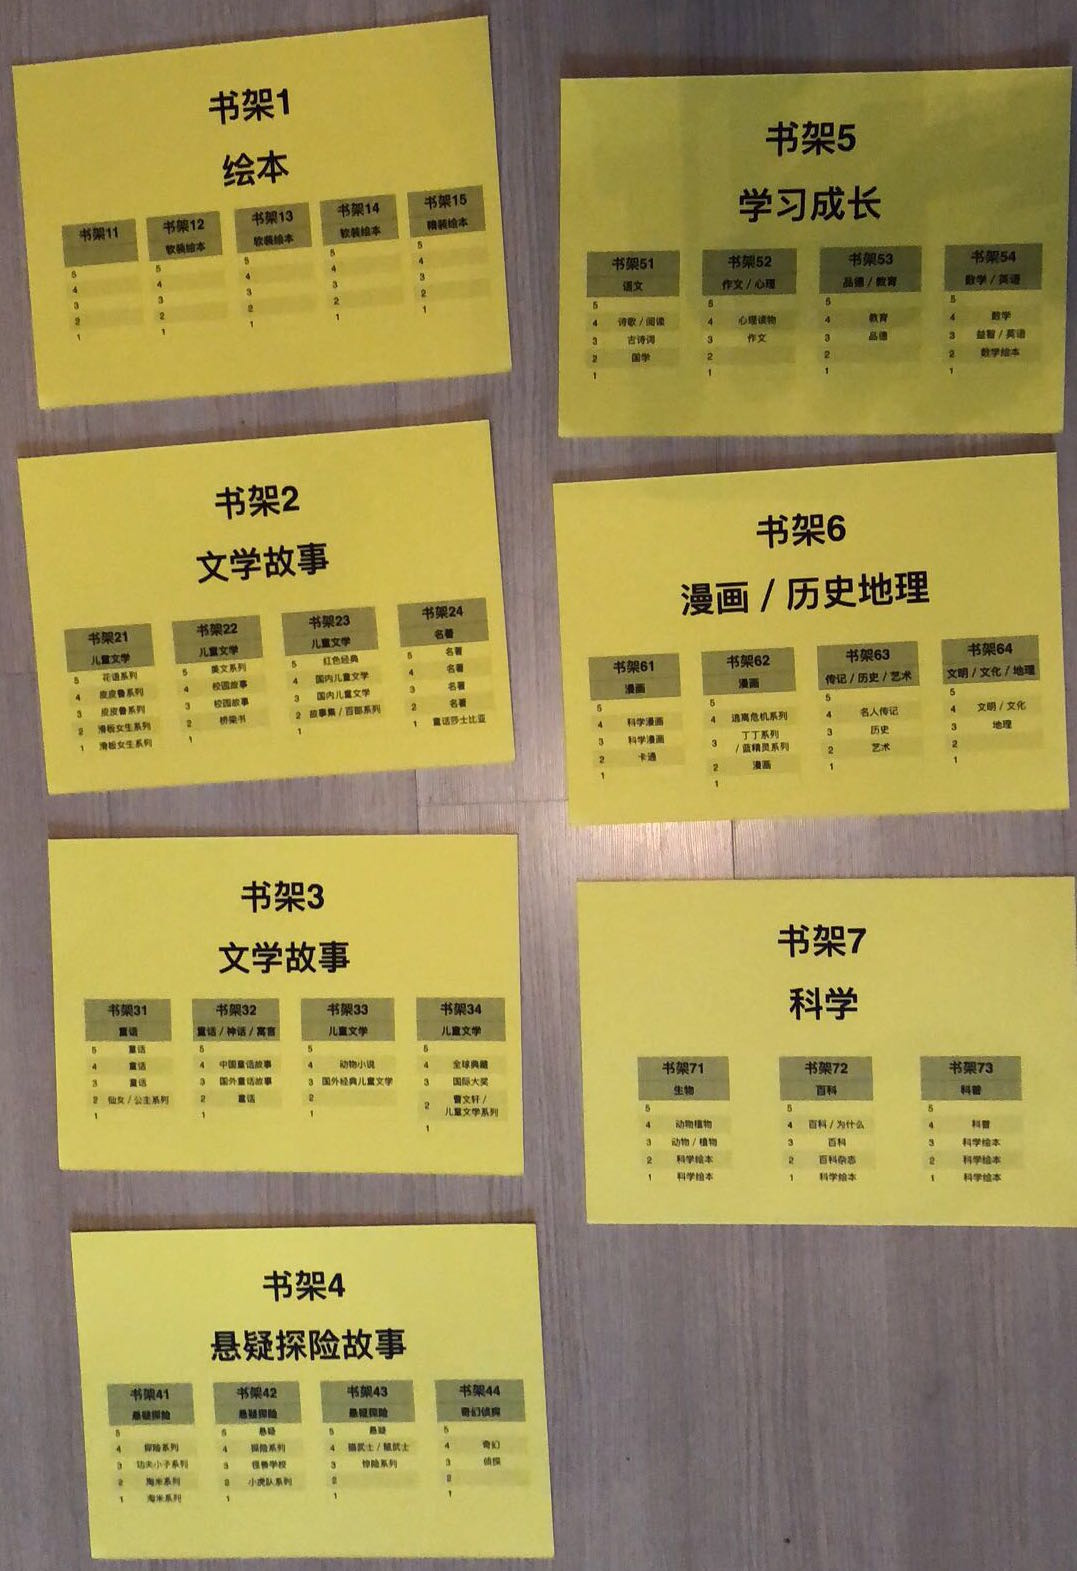 书架1
绘本
书架11 书架12 书架13 书架14 书架15
软装绘本 软装绘本 软装绘本 精装绘本
5 5 5 5 5
4 4 4 4 4
3 3 3 3 3
2 2 2 2 2
1 1 1 1 1
书架2
文学故事
书架21 书架22 书架23 书架24
儿童文学 儿童文学 儿童文学 名著
5 花语系列 5 美文系列 5 红色经典 5 名著
4 皮皮鲁系列 4 校园故事 4 国内儿童文学 4 名著
3 皮皮鲁系列 3 校园故事 3 国内儿童文学 3 名著
2 滑板女生系列 2 桥梁书 2 故事集 / 百部系列 2 名著
1 滑板女生系列 1 1 1 童话莎士比亚
书架3
文学故事
书架31 书架32 书架33 书架34
童话 童话 / 神话 / 寓言 儿童文学 儿童文学
5 童话 5 5 5
4 童话 4 中国童话故事 4 动物小说 4 全球典藏
3 童话 3 国外童话故事 3 国外经典儿童文学 3 国际大奖
2 仙女 / 公主系列 2 童话 2 2 曹文轩 /
儿童文学系列
1 1 1 1
书架4
悬疑探险故事
书架41 书架42 书架43 书架44
悬疑探险 悬疑探险 悬疑探险 奇幻侦探
5 5 悬疑 5 悬疑 5
4 探险系列 4 探险系列 4 猫武士 / 鼠武士 4 奇幻
3 功夫小子系列 3 怪兽学校 3 惊险系列 3 侦探
2 淘米系列 2 小虎队系列 2 2
1 海米系列 1 1 1
书架5
学习成长
书架51 书架52 书架53 书架54
语文 作文 / 心理 品德 / 教育 数学 / 英语
5 5 5 5
4 诗歌 / 阅读 4 心理读物 4 教育 4 数学
3 古诗词 3 作文 3 品德 3 益智 / 英语
2 国学 2 2 2 数学绘本
1 1 1 1
书架6
漫画 / 历史地理
书架61 书架62 书架63 书架64
漫画 漫画 传记 / 历史 / 艺术 文明 / 文化 / 地理
5 5 5 5
4 科学漫画 4 逃离危机系列 4 名人传记 4 文明 / 文化
3 科学漫画 3 丁丁系列
/ 蓝精灵系列 3 历史 3 地理
2 卡通 2 漫画 2 艺术 2
1 1 1 1
书架7
科学
书架71 书架72 书架73
生物 百科 科普
5 5 5
4 动物植物 4 百科 / 为什么 4 科普
3 动物 / 植物 3 百科 3 科学绘本
2 科学绘本 2 百科杂志 2 科学绘本
1 科学绘本 1 科学绘本 1 科学绘本